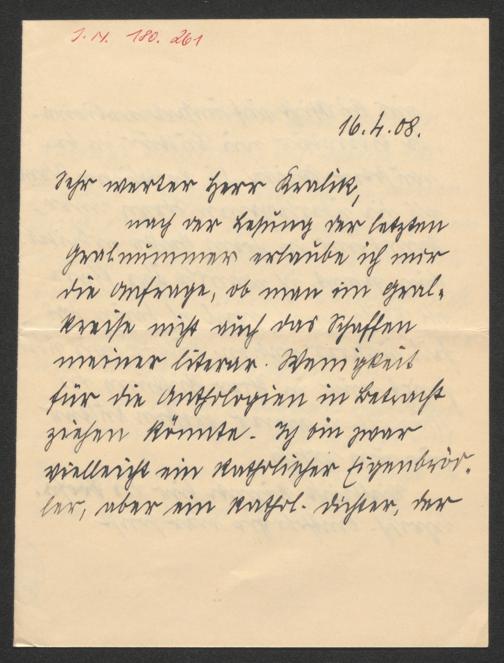 J. N. 180. 261
16.4.08.
Sehr werter Herr Kralik,
nach der Lesung der letzten
Gralnummer erlaube ich mir
die Anfrage, ob man im Gral-
kreise nicht auch das Schaffen
meiner literar. Wenigkeit
für die Anthologien in Betracht
ziehen könnte. Ich bin zwar
vielleicht ein katholischer Eigenbröd-
ler, aber ein kathol. Dichter, der